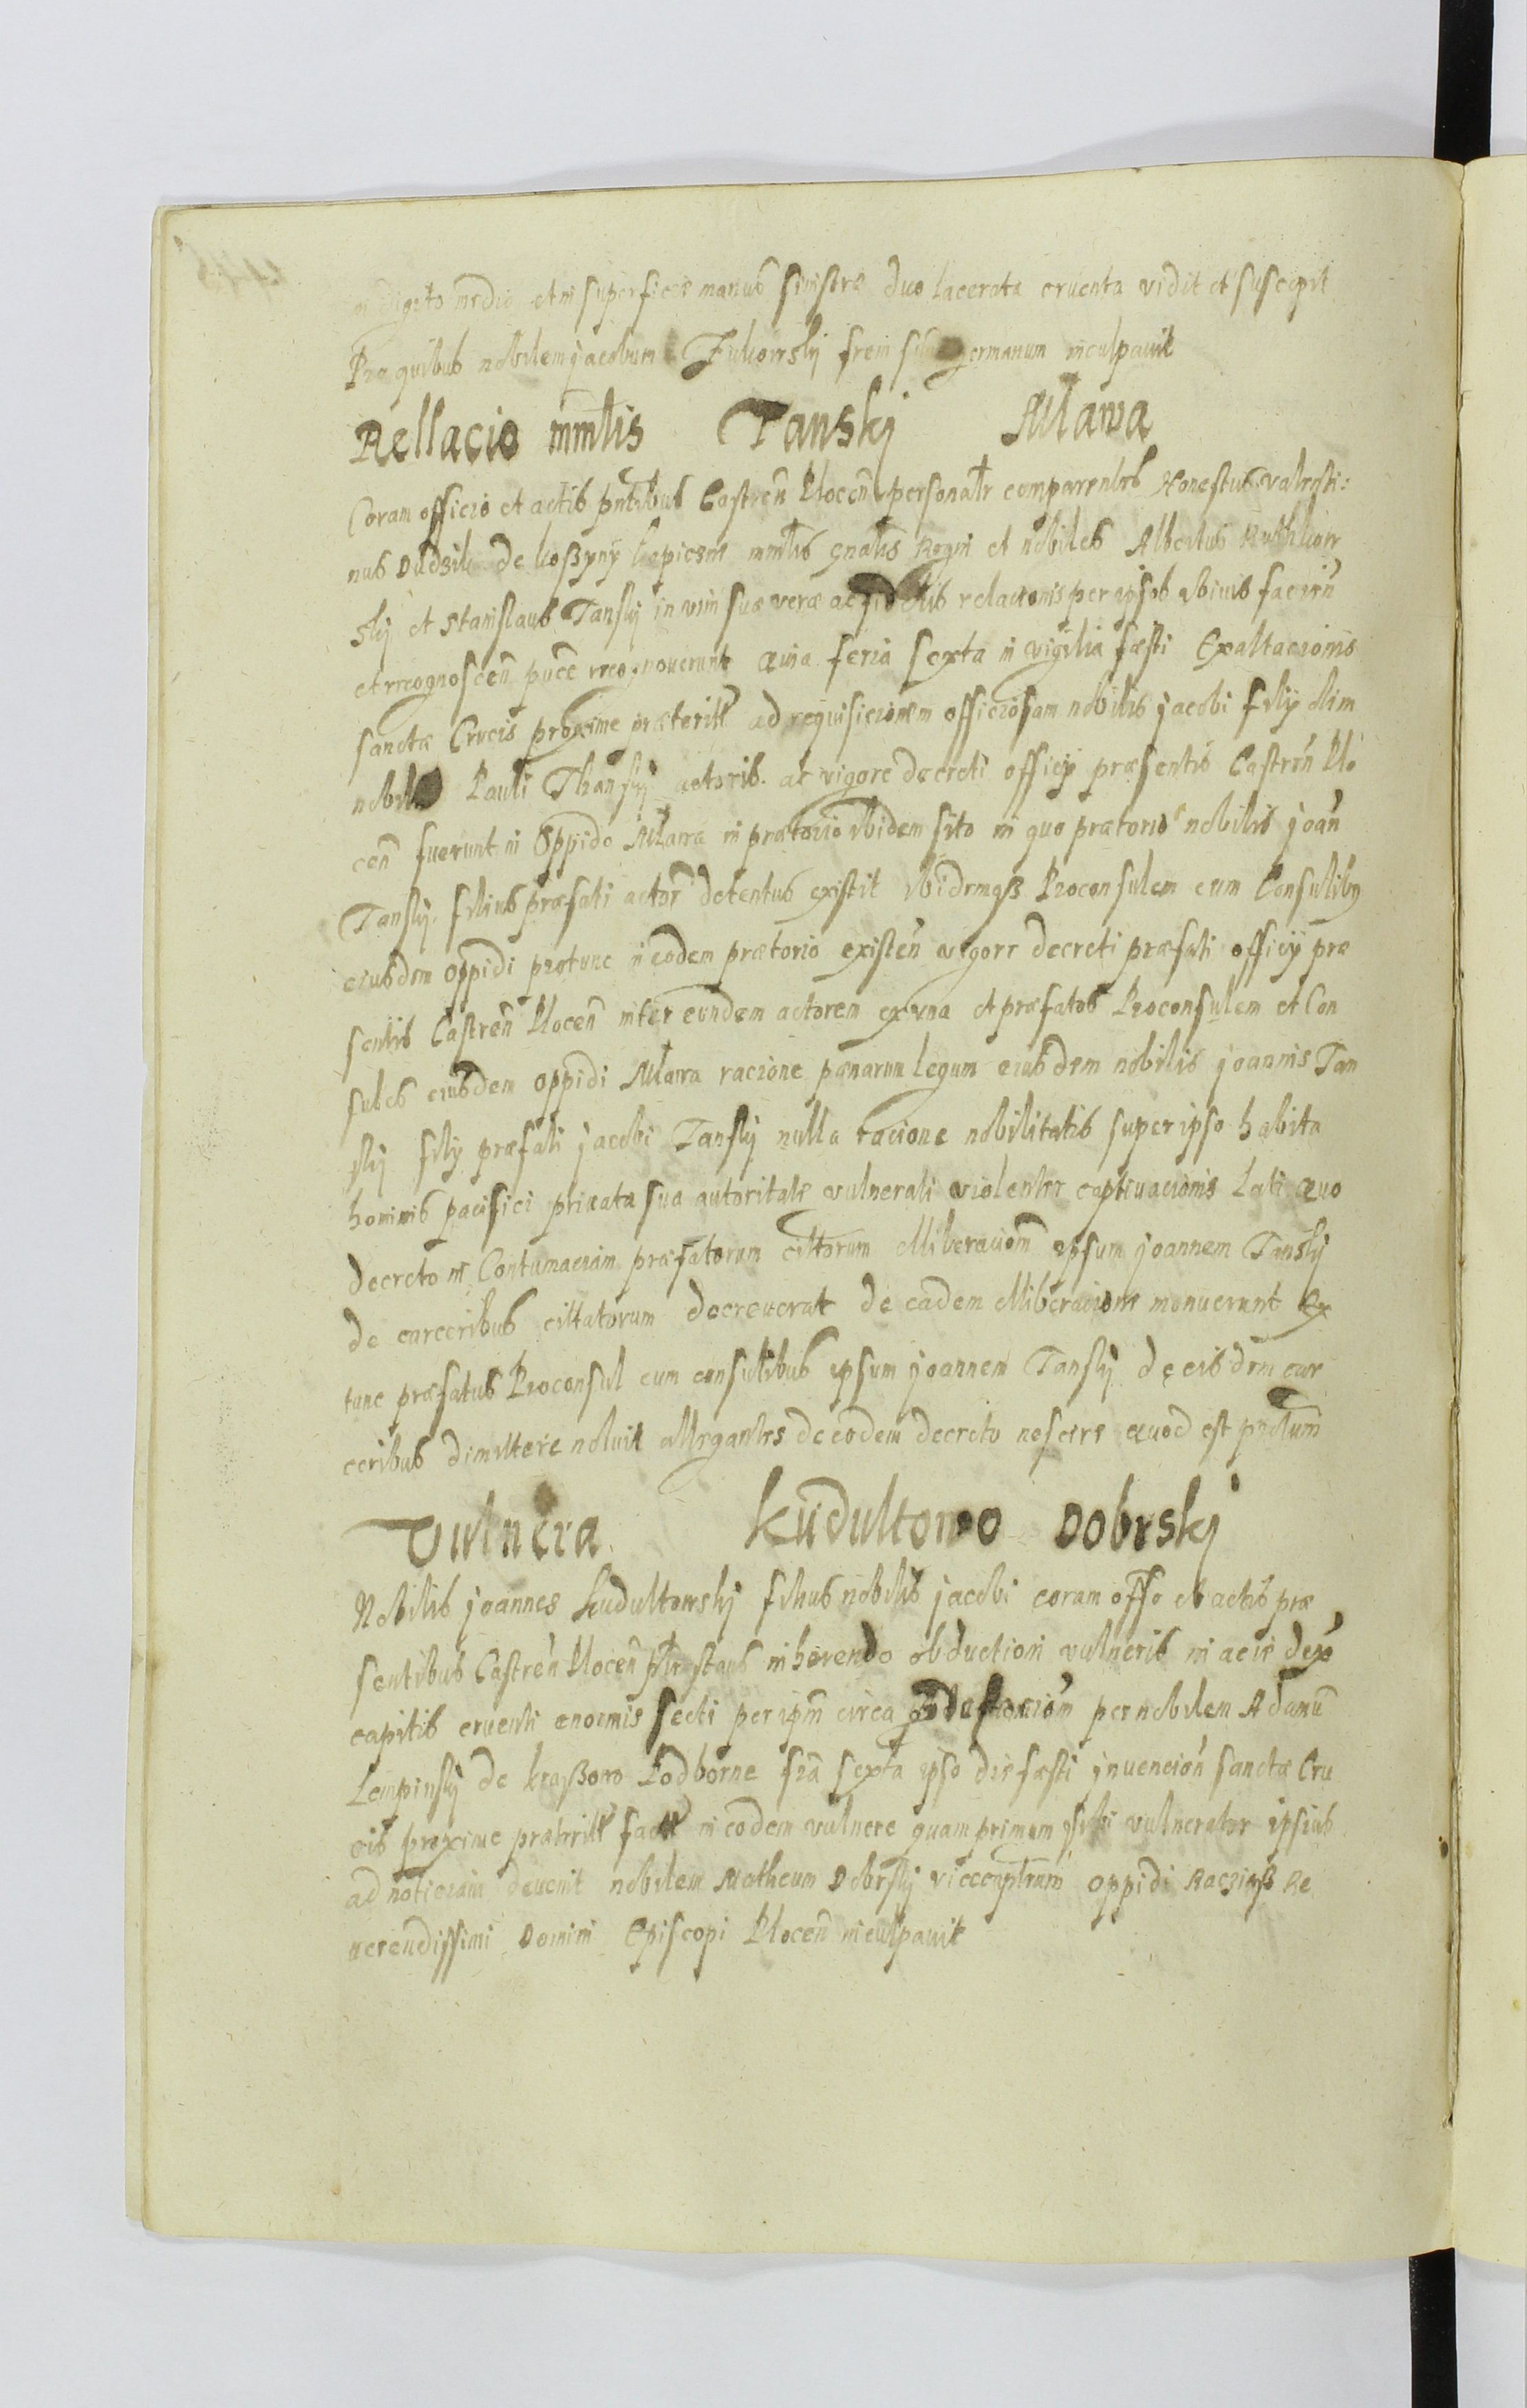 in digito medio et in superficie manus sinistre duo lacerata cruenta vidit et suscepit
Pro quibus nobilem jacobum Zukowskj frem suum germanum inculpauit
Rellacio mintlis Tanskj Mlawa
Coram officio et actis pntibus Castren Plocen personaltr comparentes Honestus Valenti:
nus Dudzik de koßyny kepiesne mintlis gnalis Regni et nobiles Albertus Ruthkow
skj et Stanislaus Tanskj in vim suæ veræ ac fidelis relacionis per ipsos obiuis facien
et recognoscen puce recognouerunt Quia feria sexta in vigilia fæsti Exaltacionis
sanctæ Crucis proxime præterite ad requisicionem officiosam nobilis jacobi filij olim
nobilis Pauli Thanskj actoris ac vigore decreti officij præsentis Castren Plo
cen fuerunt in Oppido Mlawa in prætorio ibidem sito in quo prætorio nobilis joan
Tanskj filius præfati actor detentus existit ibidemqß Proconsulem cum Consulibq
eiusdem oppidi protunc in eodem prætorio existen vigore decreti præfati officij præ
sentis Castren Plocen inter eundem actorem ex una et præfatos Proconsulem et Con
sules eiusdem oppidi Mlawa racione pænarum legum eiusdem nobilis joannis Tan
skj filij præfati jacobi Tanskj nulla racione nobilitatis super ipso habita
hominis pacifici priuata sua autoritate vulnerati violenter captiuacionis Lati Quo
decreto in Contumaciam præfatorum cittorum elliberaciom ipsum joannem Tanskj
de carceribus cittatorum decreuerat de eadem elliberacione monuerunt Ex
tunc præfatus Proconsul cum consulibus ipsum joannem Tanskj de eisdem car
ceribus dimittere noluit allegantes de eodem decreto nescire quod est protum
Vulnera kudultowo Dobrskj
Nobilis joannes kudultowskj filius nobilis jacobi coram offo et actis præ
sentibus Castren Plocen pltr stans inherendo obductioni vulneris in acie dex
capitis cruenti enormis secti per ipm circa per nobilem Adamu
Lempinskj de kraßowo Podborne fria sexta ipso die fæsti jnuencion sanctæ Cru
cis proxime præterite facte in eodem vulnere quam primum sibi vulnerator ipsius
ad noticiam deuenit nobilem Matheum Dobrskj vicecaptneum oppidi Racziąß Re
uerendissimi Domini Episcopi Plocen inculpauit